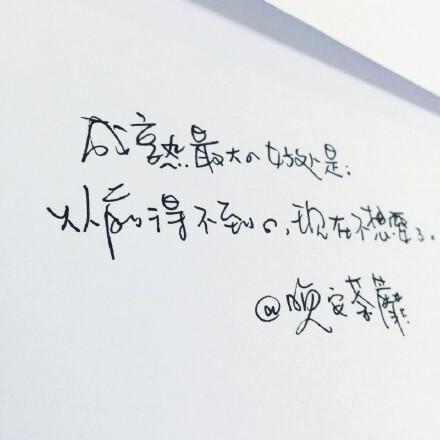 成熟最大的好处是:
从前得不到的,现在不想要了.
@晚安荼蘼